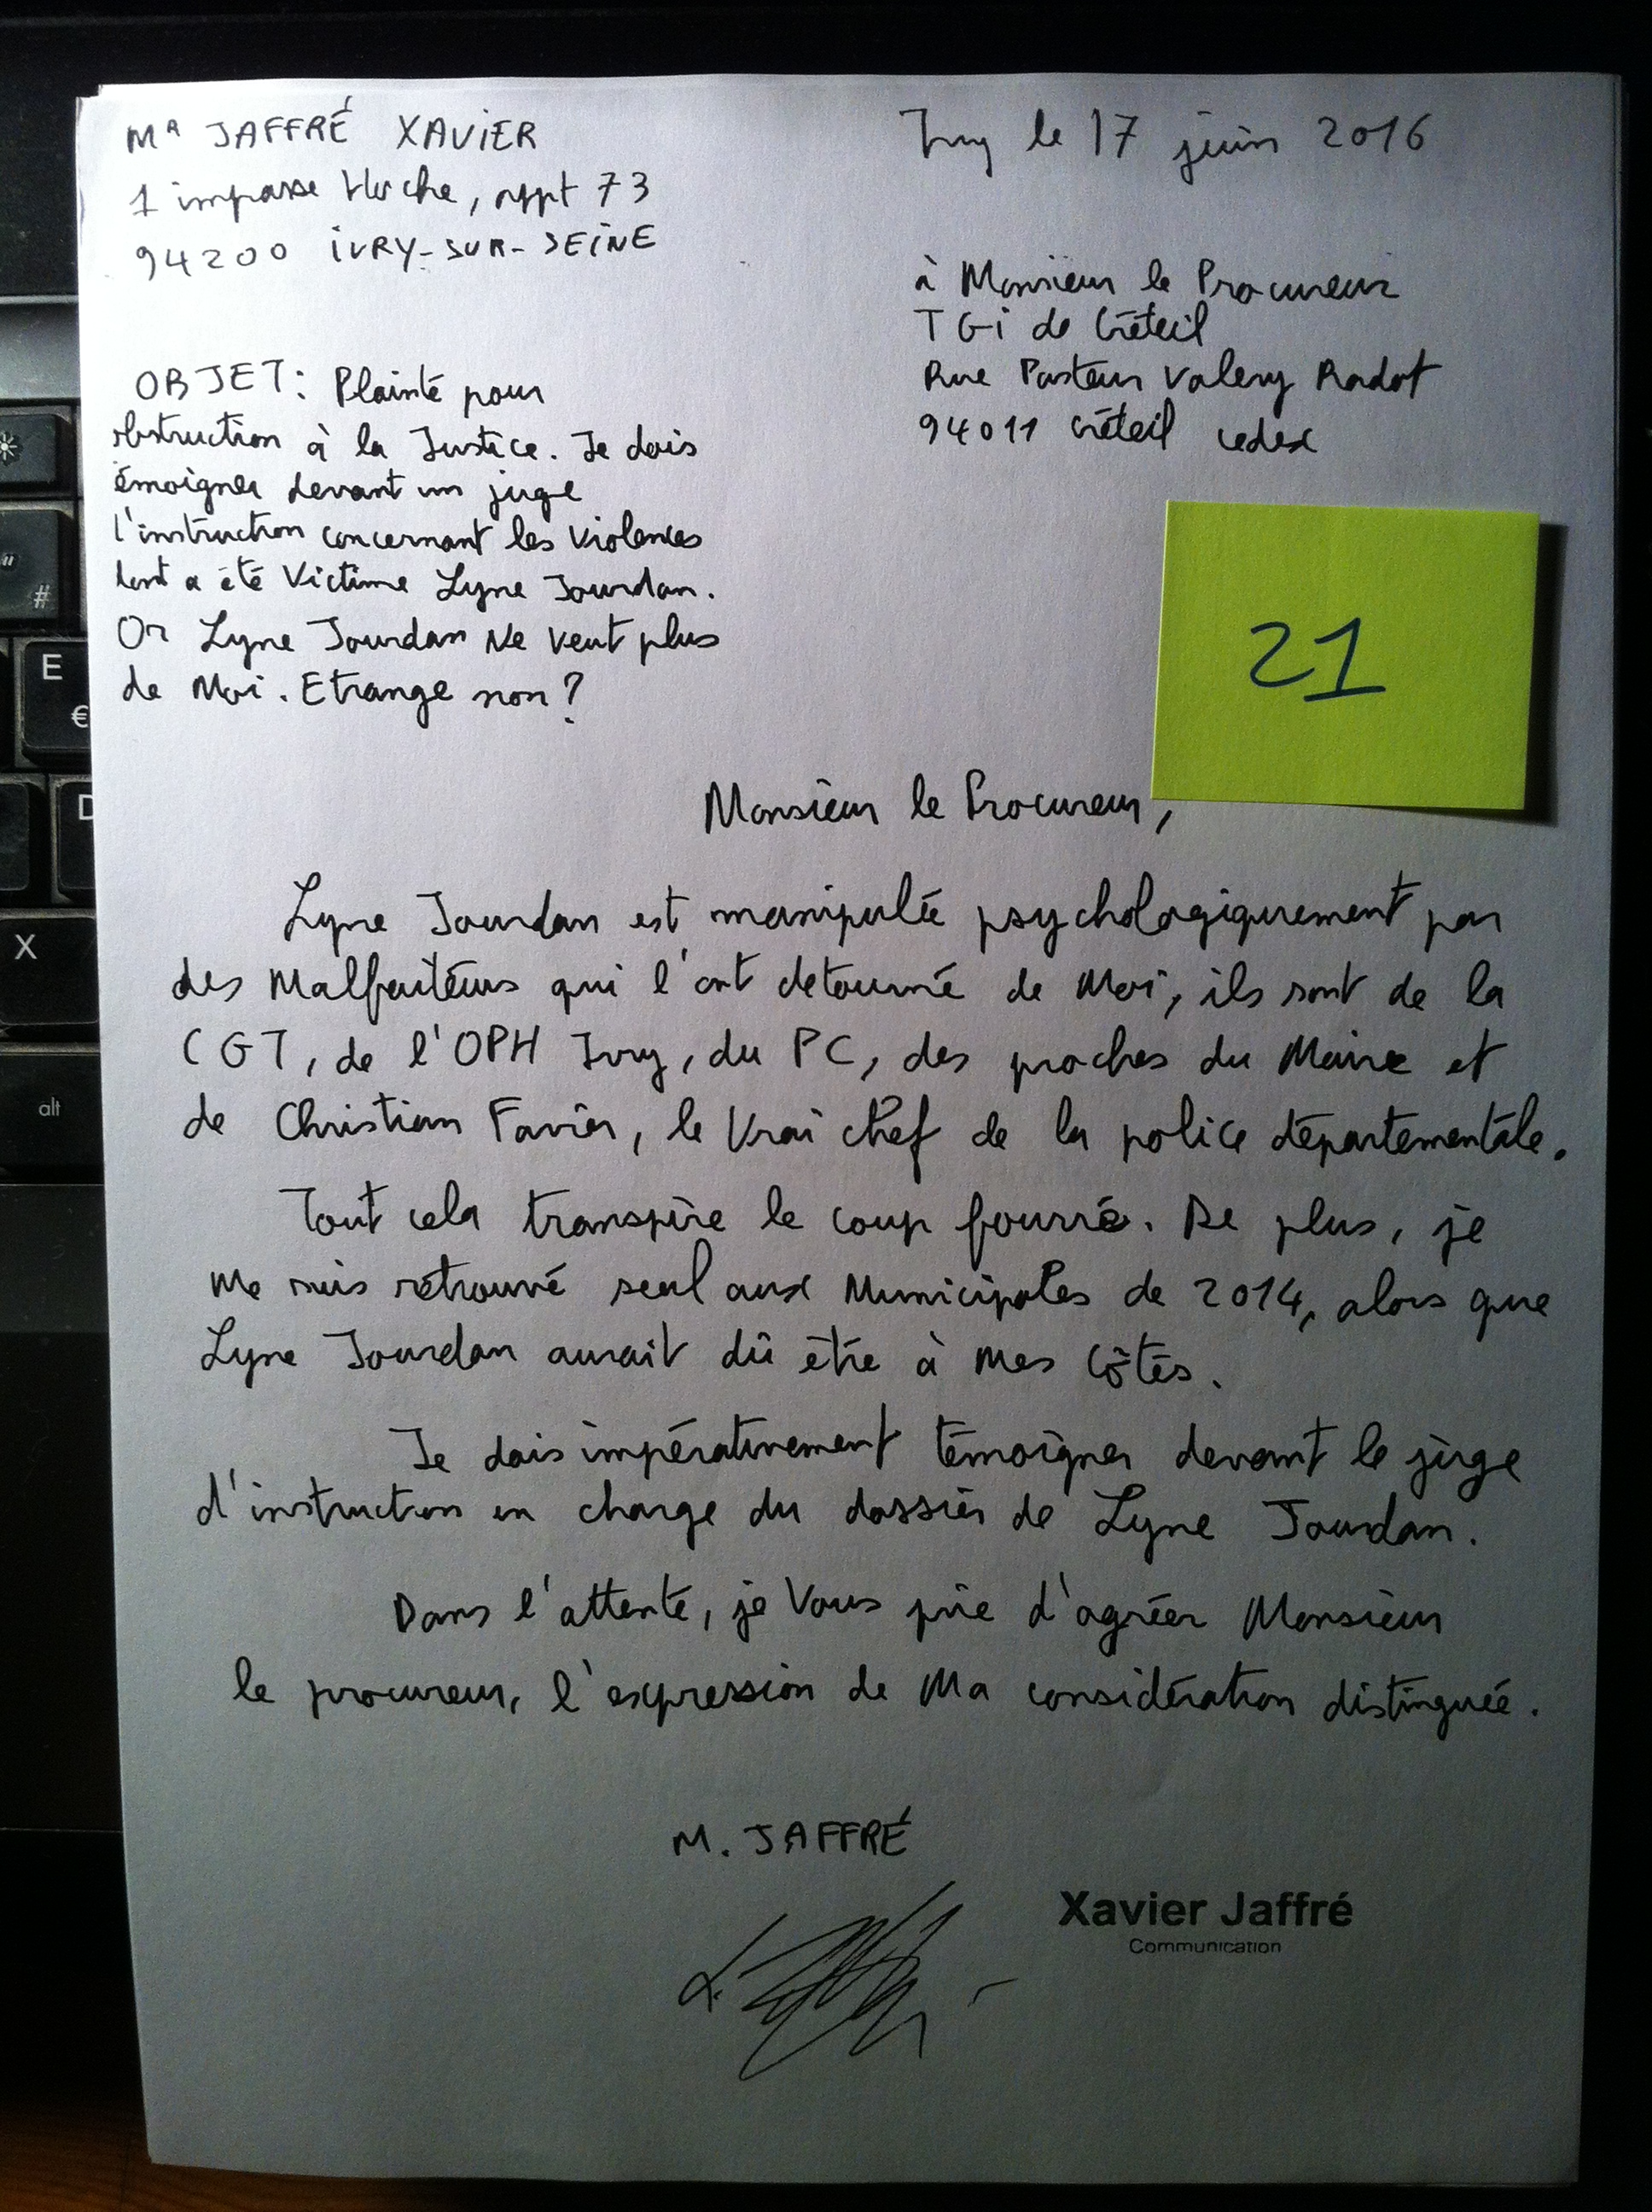 Mr JAFFRÉ XAVIER
1 impasse Hoche, appt 73
94200 IVRY-SUR-SEINE
Ivry le 17 juin 2016
à Monsieur le Procureur
TGI de Créteil
Rue Pasteur Valery Radot
94011 Créteil cedex
OBJET: Plainte pour
obstruction à la Justice. Je dois
émoigner devant un juge
l'instruction concernant les violences
dont a été Victime Lyne Jourdan.
Or Lyne Jourdan Ne veut plus
de Moi. Etrange non?
21
Monsieur le Procureur,
Lyne Jourdan est manipulée psychologiquement par
des Malfaiteurs qui l'ont detourné de Moi, ils sont de la
CGT, de l'OPH Ivry, du PC, des proches du Maire et
de Christian Favier, le Vrai chef de la police départementale.
Tout cela transpire le coup fourré. De plus, je
me suis retrouvé seul aux Municipales de 2014, alors que
Lyne Jourdan aurait dû être à mes côtés.
Je dois impérativement témoigner devant le juge
d'instruction en charge du dossier de Lyne Jourdan.
Dans l'attente, je Vous prie d'agréer Monsieur
le procureur, l'expression de Ma considération distinguée.
M. JAFFRÉ
Xavier Jaffré
Communication
E
€
#
"
D
X
alt